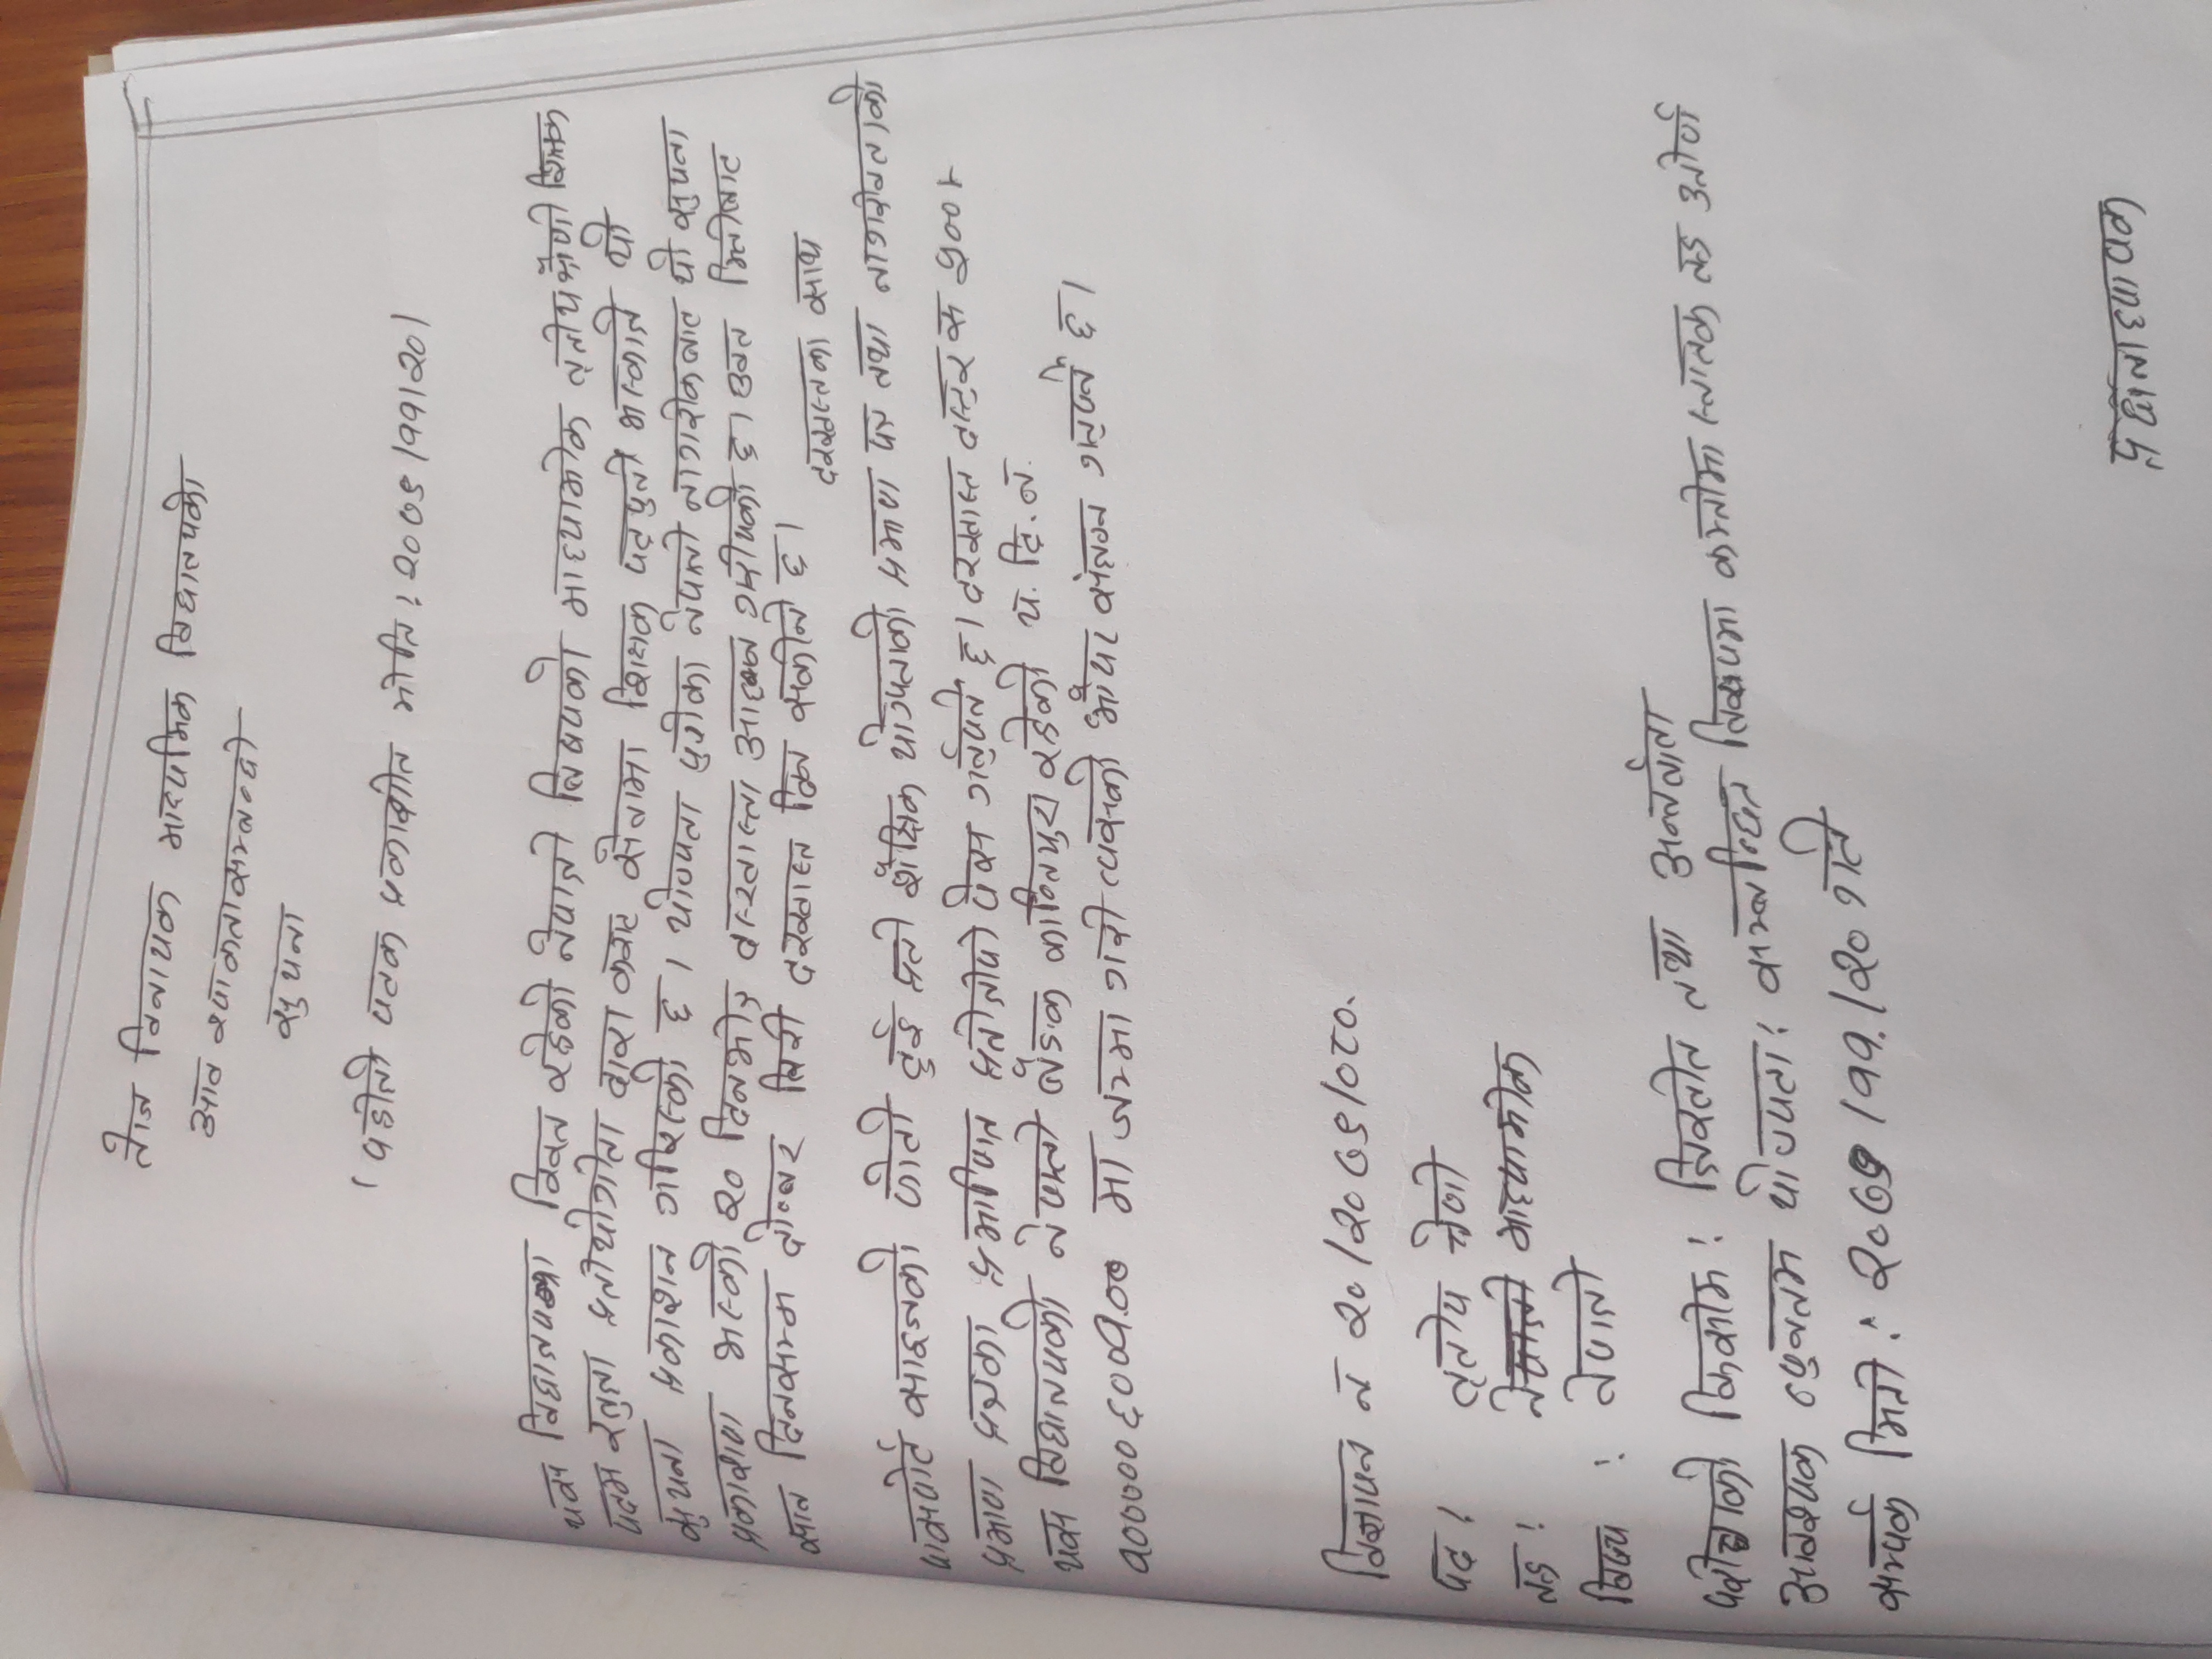 तेज विनायक माध्यमिक विद्यालयको
आवश्यकतासम्बन्धी
सुचना
(पहीलो पटक प्रकाशीत मीति: २०७९/११/२०)
यस विद्यालयका रिक्त रहेको नेपाली बिषयको माध्यामीक तृतीय श्रेणी शिक्षक
पदम खुला प्रतीयोगीता द्वारा करार सेवामा शिक्षक पदपुर्ती भएकाले यो
सुचना प्रकाशन गरिएको छ। योग्यता पुगेका नेपाली नागरीकबाट यो सुचना
प्रकाशण भएको २० दिनभीत्र दरखास्त आह्वान गरीएको छ। उक्त मितीबाट
सात दिनसम्म दोब्बर तिरी दरखास्त दिन सकीने छ।
दरखास्तका साथ
पासपोर्ट साइजको फोटो दुई प्रती शैक्षिक योग्यताको प्रमाण पत्र तथा नागरीकताको
प्रमाण पत्रका प्रमाणित प्रतीलीपी पेस गर्नुपर्ने छ। दरखास्त दस्तुर रु ५००।-
यस विद्यालयको नेपाली बैङ्क कान्तिपुरा रहेको च. हि. नं.
मा जम्मा गरी त्यसको भौचर संलग्न गर्नुपर्ने छ।
विज्ञापन नं २०/२०७९/०८०.
पद: तृतीय श्रेणी
तह: नेपाली माध्यामीक
बिषय : नेपाली
परीक्षाको किसीम: लिखीत तथा अन्तर्वाता
आवश्यक न्युनतम योग्यता: सम्बन्धित विषयमा कम्तीमा स्नातक तह उतीर्ण
सम्पर्क मिती: २०७९/११/२० गते
प्रधानाध्यापक